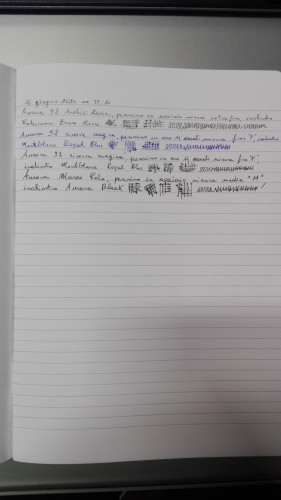 16 giugno 2020 ore 22.40
Aurora 98 , pennino in acciaio misura extra fine, inchiostro
Rohrer
Aurora 98 riserva magica, pennino in oro 14 carati misura fine "F", inchiostro
Montblanc Royal Blue
Aurora 98 riserva magica, pennino in oro 14 carati misura fine "F",
inchiostro Montblanc Royal Blue
Aurora Marco Polo, pennino in acciaio misura media "M"
inchiostro Aurora Black